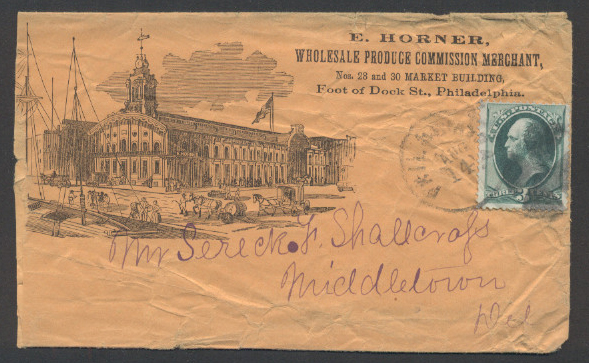 E. HORNER,
WHOLESALE PRODUCE COMMISSION MERCHANT,
Nos. 28 and 30 MARKET BUILDING,
Foot of Dock St., Philadelphia.
U.S. POSTAGE
Mr Sereck F. Shallcross
Middletown
Del